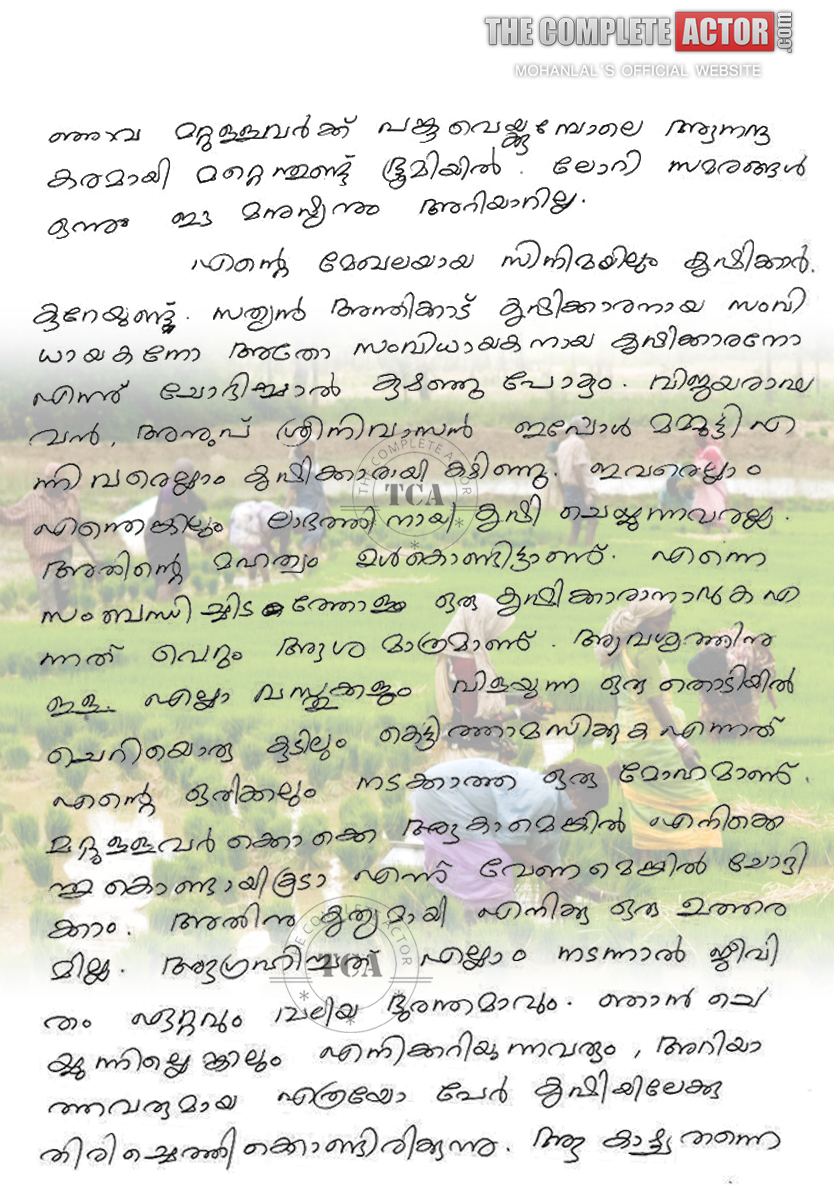 THE COMPLETE ACTOR .com
MOHANLAL'S OFFICIAL WEBSITE
അവ മറ്റുള്ളവർക്ക് പങ്കുവെയ്ക്കുമ്പോലെ ആനന്ദ
കരമായി മറ്റെന്തുണ്ട് ഭൂമിയിൽ. ലോറി സമരങ്ങൾ
ഒന്നും ഈ മനുഷ്യനും അറിയാനില്ല.
എന്റെ മേഖലയായ സിനിമയിലും കൃഷിക്കാർ.
കുറേയുണ്ട്. സത്യൻ അന്തിക്കാട് കൃഷിക്കാരനായ സംവി
ധായകനോ അതോ സംവിധായകനായ കൃഷിക്കാരനോ
എന്ന് ചോദിച്ചാൽ കുഴഞ്ഞു പോകും. വിജയരാഘ
വൻ, അനൂപ് ശ്രീനിവാസൻ ഇപ്പോൾ മമ്മൂട്ടി എ
ന്നിവരെല്ലാം കൃഷിക്കാരായി കഴിഞ്ഞു. ഇവരെല്ലാം
എന്തെങ്കിലും ലാഭത്തിനായി കൃഷി ചെയ്യുന്നവരല്ല.
അതിന്റെ മഹത്വം ഉൾകൊണ്ടിട്ടാണ്. എന്നെ
സംബന്ധിച്ചിടത്തോളം ഒരു കൃഷിക്കാരാനാവുക എ
ന്നത് വെറും ആശ മാത്രമാണ്. ആവശ്യത്തിനു
ഉള്ള എല്ലാ വസ്തുക്കളും വിളയുന്ന ഒരു തൊടിയിൽ
ചെറിയൊരു കുടിലും കെട്ടിത്താമസിക്കുക എന്നത്
എന്റെ ഒരിക്കലും നടക്കാത്ത ഒരു മോഹമാണ്.
മറ്റുള്ളവർക്കൊക്കെ ആകാമെങ്കിൽ എനിക്കെ
ന്തുകൊണ്ടായികൂടാ എന്ന് വേണമെങ്കിൽ ചോദി
ക്കാം. അതിനു കൃത്യമായി എനിക്കു ഒരു ഉത്തര
മില്ല. ആഗ്രഹിച്ചത് എല്ലാം നടന്നാൽ ജീവി
തം ഏറ്റവും വലിയ ദുരന്തമാവും. ഞാൻ ചെ
യ്യുന്നില്ലെങ്കിലും എനിക്കറിയുന്നവരും, അറിയാ
ത്തവരുമായ എത്രയോ പേർ കൃഷിയിലേക്കു
തിരിച്ചെത്തിക്കൊണ്ടിരിക്കുന്നു. ആ കാഴ്ച്ച തന്നെ
THE COMPLETE ACTOR
TCA
THE COMPLETE ACTOR
TCA